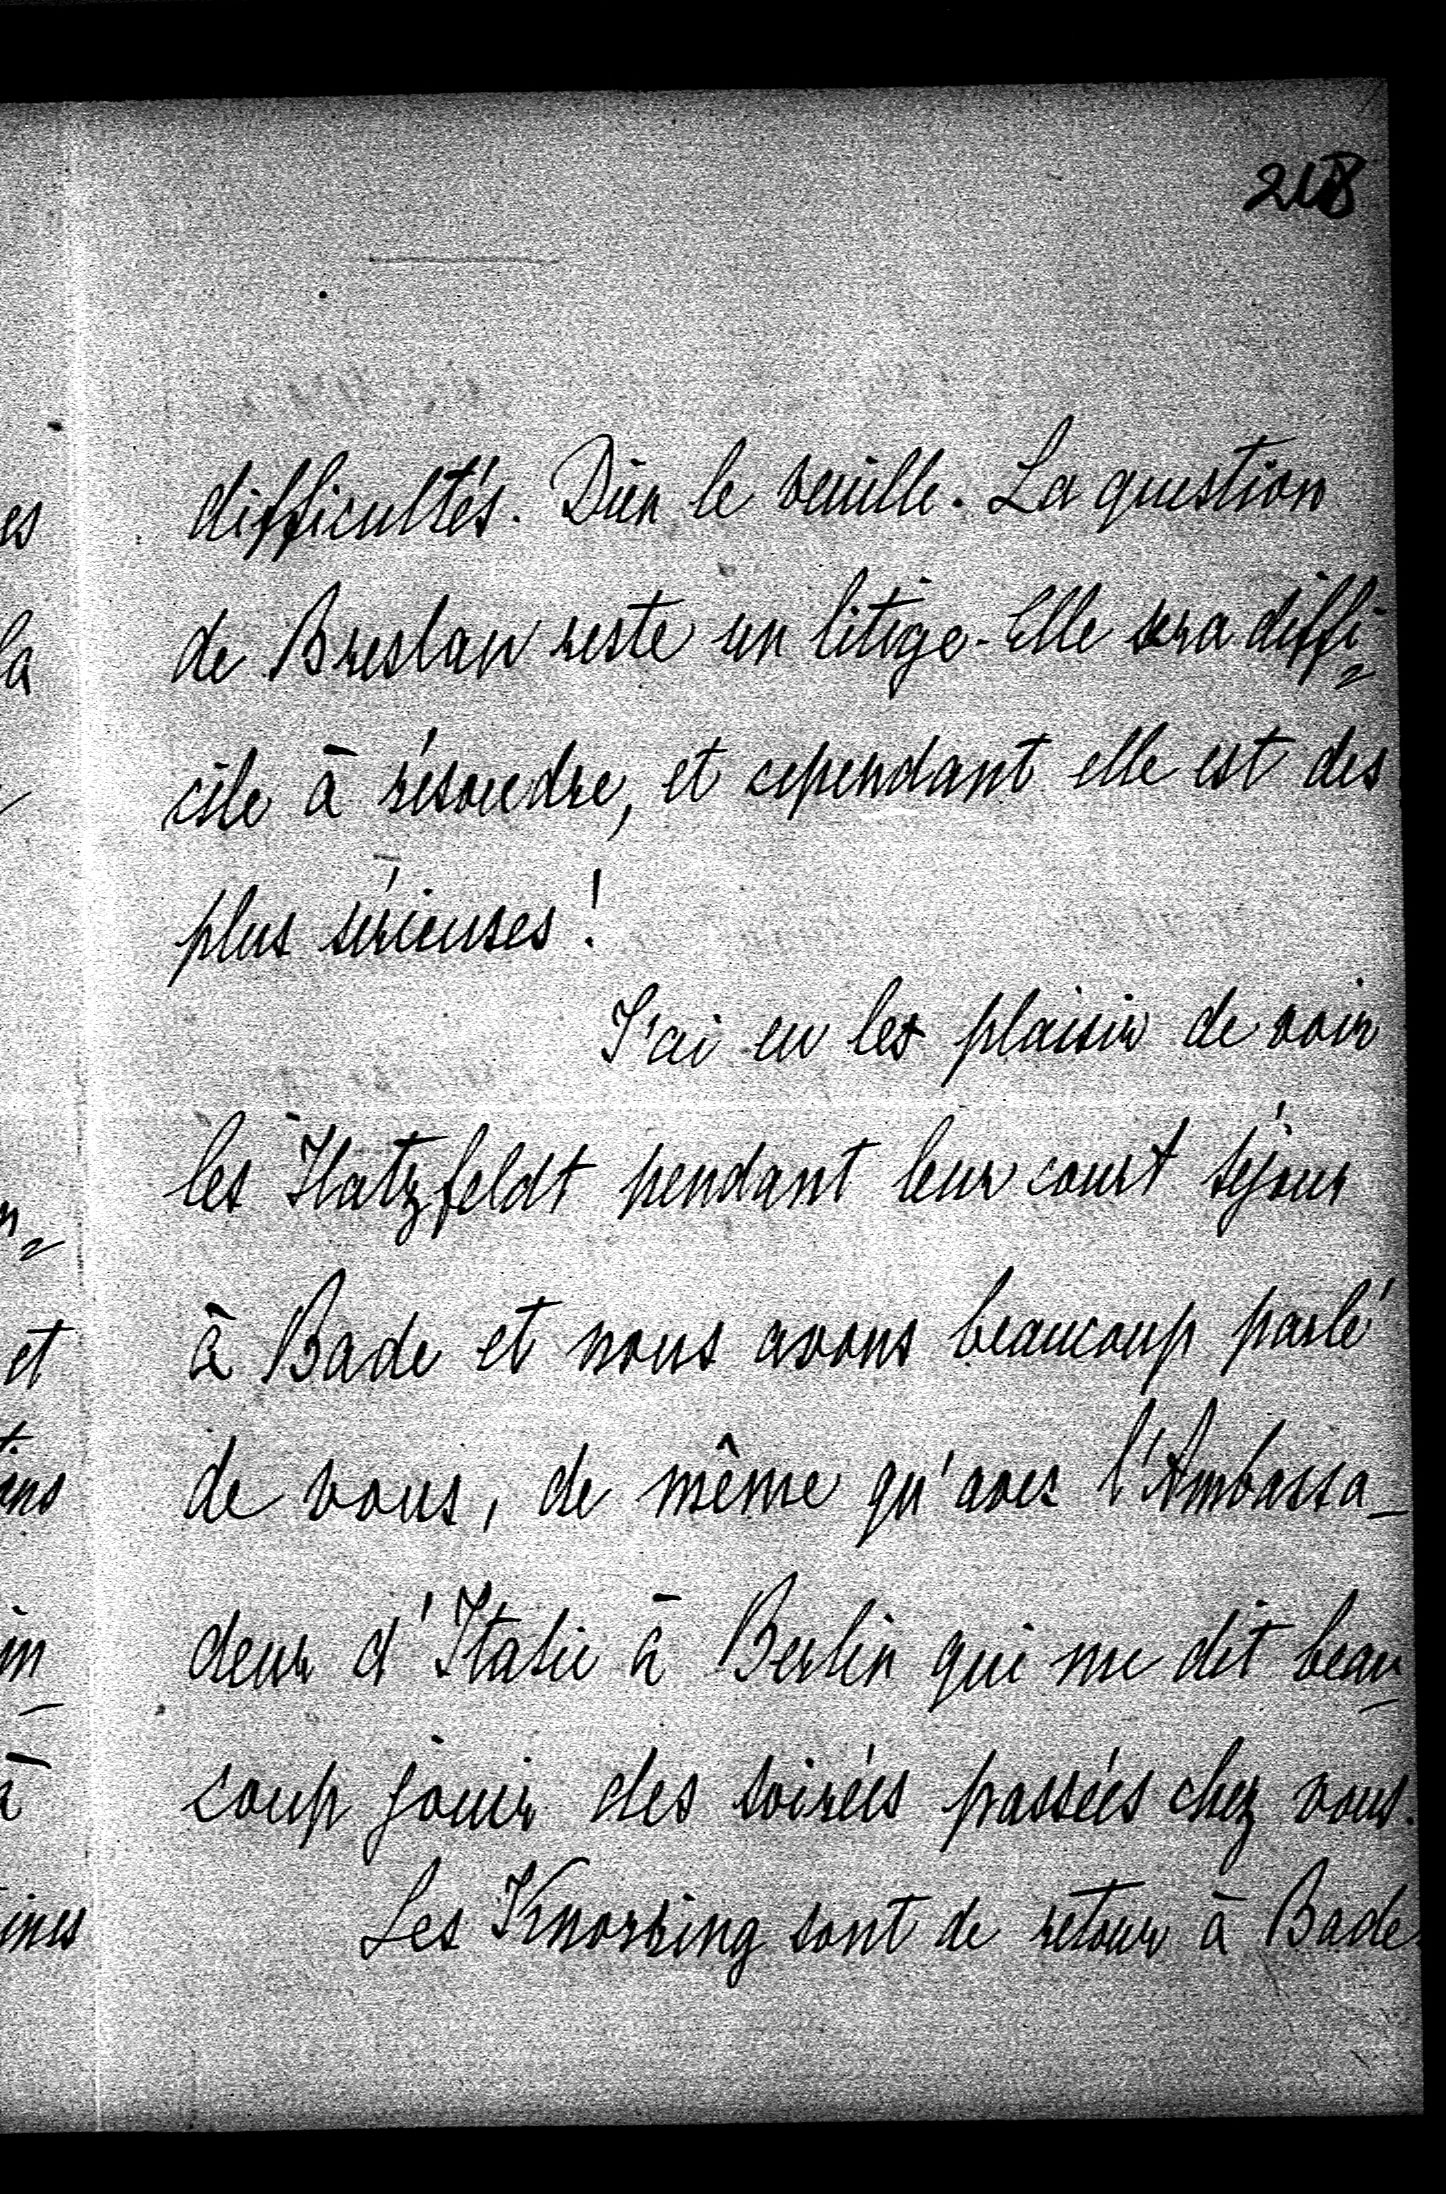 difficultés. Dieu le veuille. La question
de Breslau reste en litige. Elle sera diffi=
cile à résoudre, et cependant elle est des
plus sérieuses!
J'ai eu les plaisir de voir
les Hatzfeldt pendant leur court séjour
à Bade et nous avons beaucoup parlé
de vous, de même qu'avec l'Ambassa-
deur d'Italie à Berlin qui me dit beau-
coup jouir des soirées passées chez vous.
Les Knorring sont de retour à Bade.